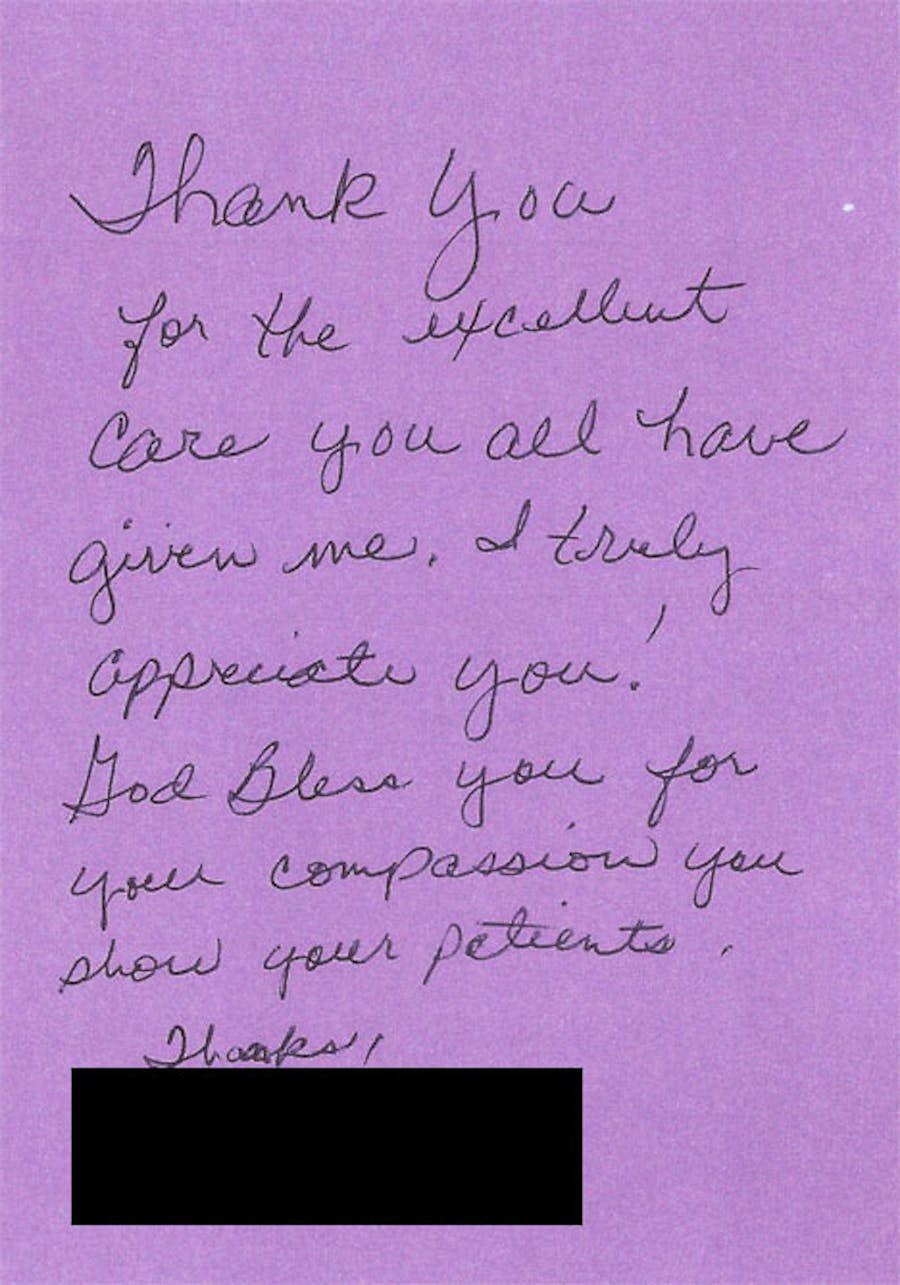 Thank You
for the excellent
care you all have
given me. I truly
appreciate you!
God Bless you for
your compassion you
show your patients.
Thanks,